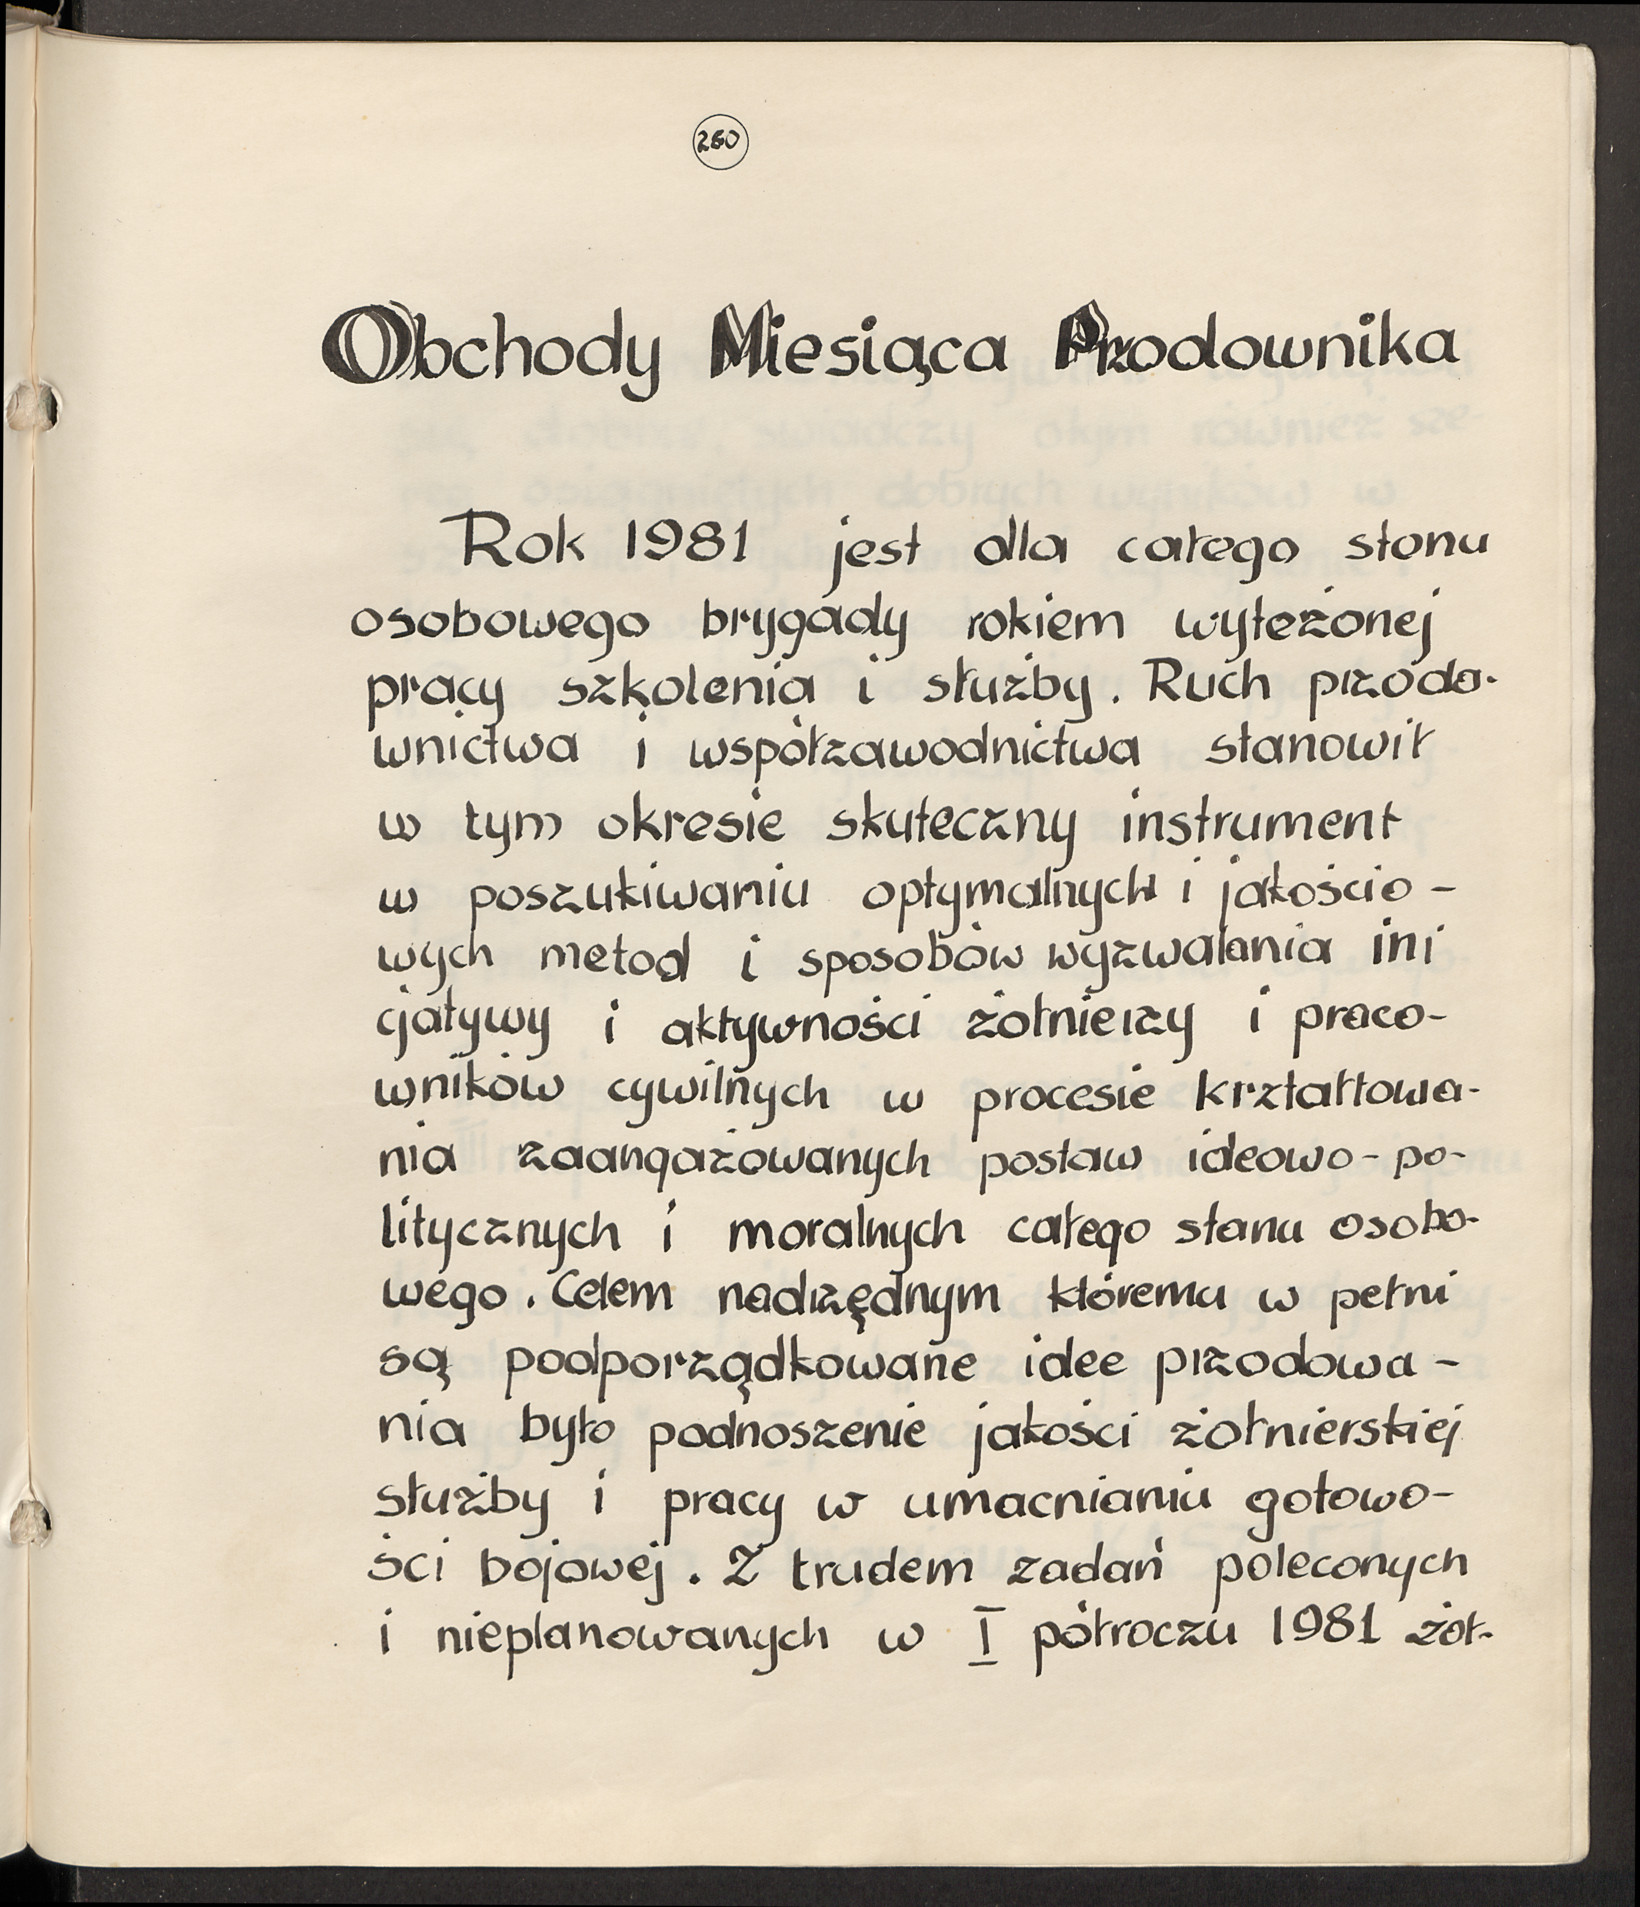 260
Obchody Miesiąca Przodownika
Rok 1981 jest dla całego stonu
osobowego brygady rokiem wytężonej
pracy szkolenia i służby. Ruch przodo-
wnictwa i współzawodnictwa stanowił
w tym okresie skuteczny instrument
w poszukiwaniu optymalnych i jakościo-
wych metod i sposobów wyzwalania ini
cjatywy i aktywności żołnierzy i praco-
wników cywilnych w procesie krztałtowa-
nia zaangażowanych postaw ideowo-po-
litycznych i moralnych całego stanu osobo-
wego. Celem nadrzędnym któremu w pełni
są podporządkowane idee przodowa-
nia było podnoszenie jakości żołnierskiej
służby i pracy w umacnianiu gotowo-
ści bojowej. Z trudem zadań poleconych
i nieplanowanych w I półroczu 1981 żoł-